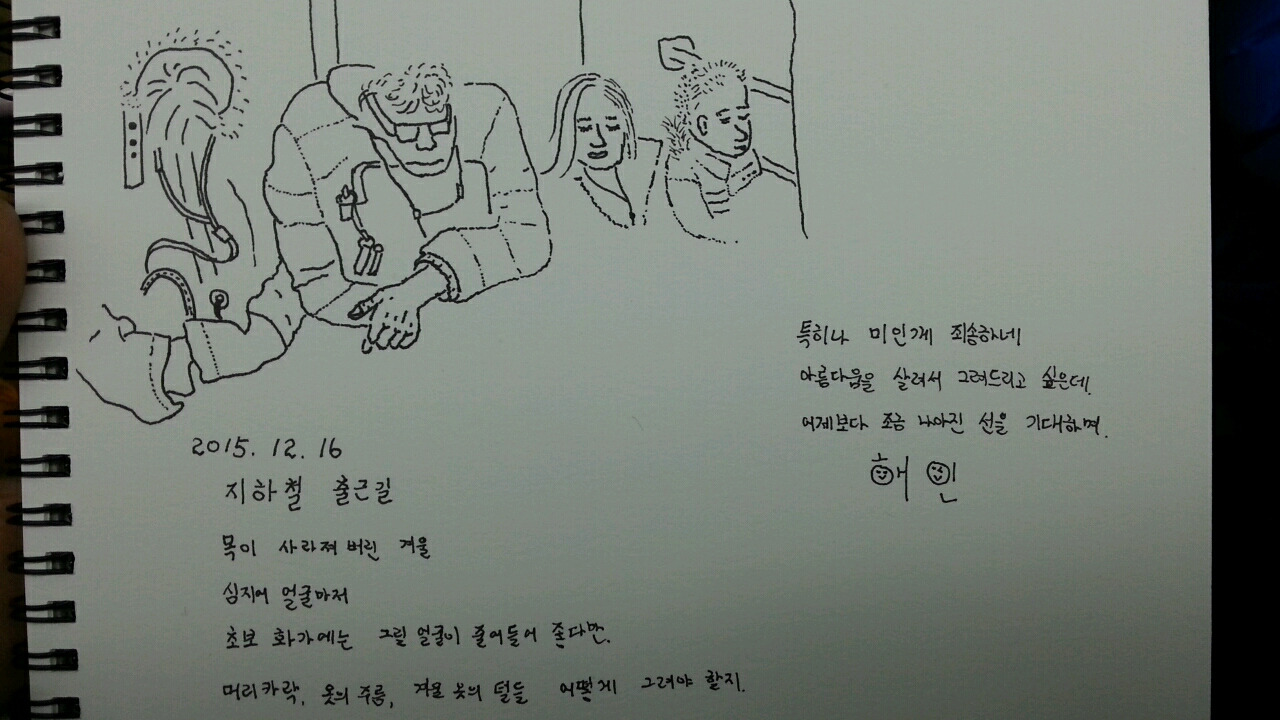 특히나 미인께 죄송하네
아름다움을 살려서 그려드리고 싶은데.
어제보다 조금 나아진 선을 기대하며.
해인
2015. 12. 16
지하철 출근길
목이 사라져 버린 겨울
심지어 얼굴마저
초보 화가에는 그릴 얼굴이 줄어들어 좋다만.
머리카락, 옷의 주름, 겨울 옷의 털들 어떻게 그려야 할지.